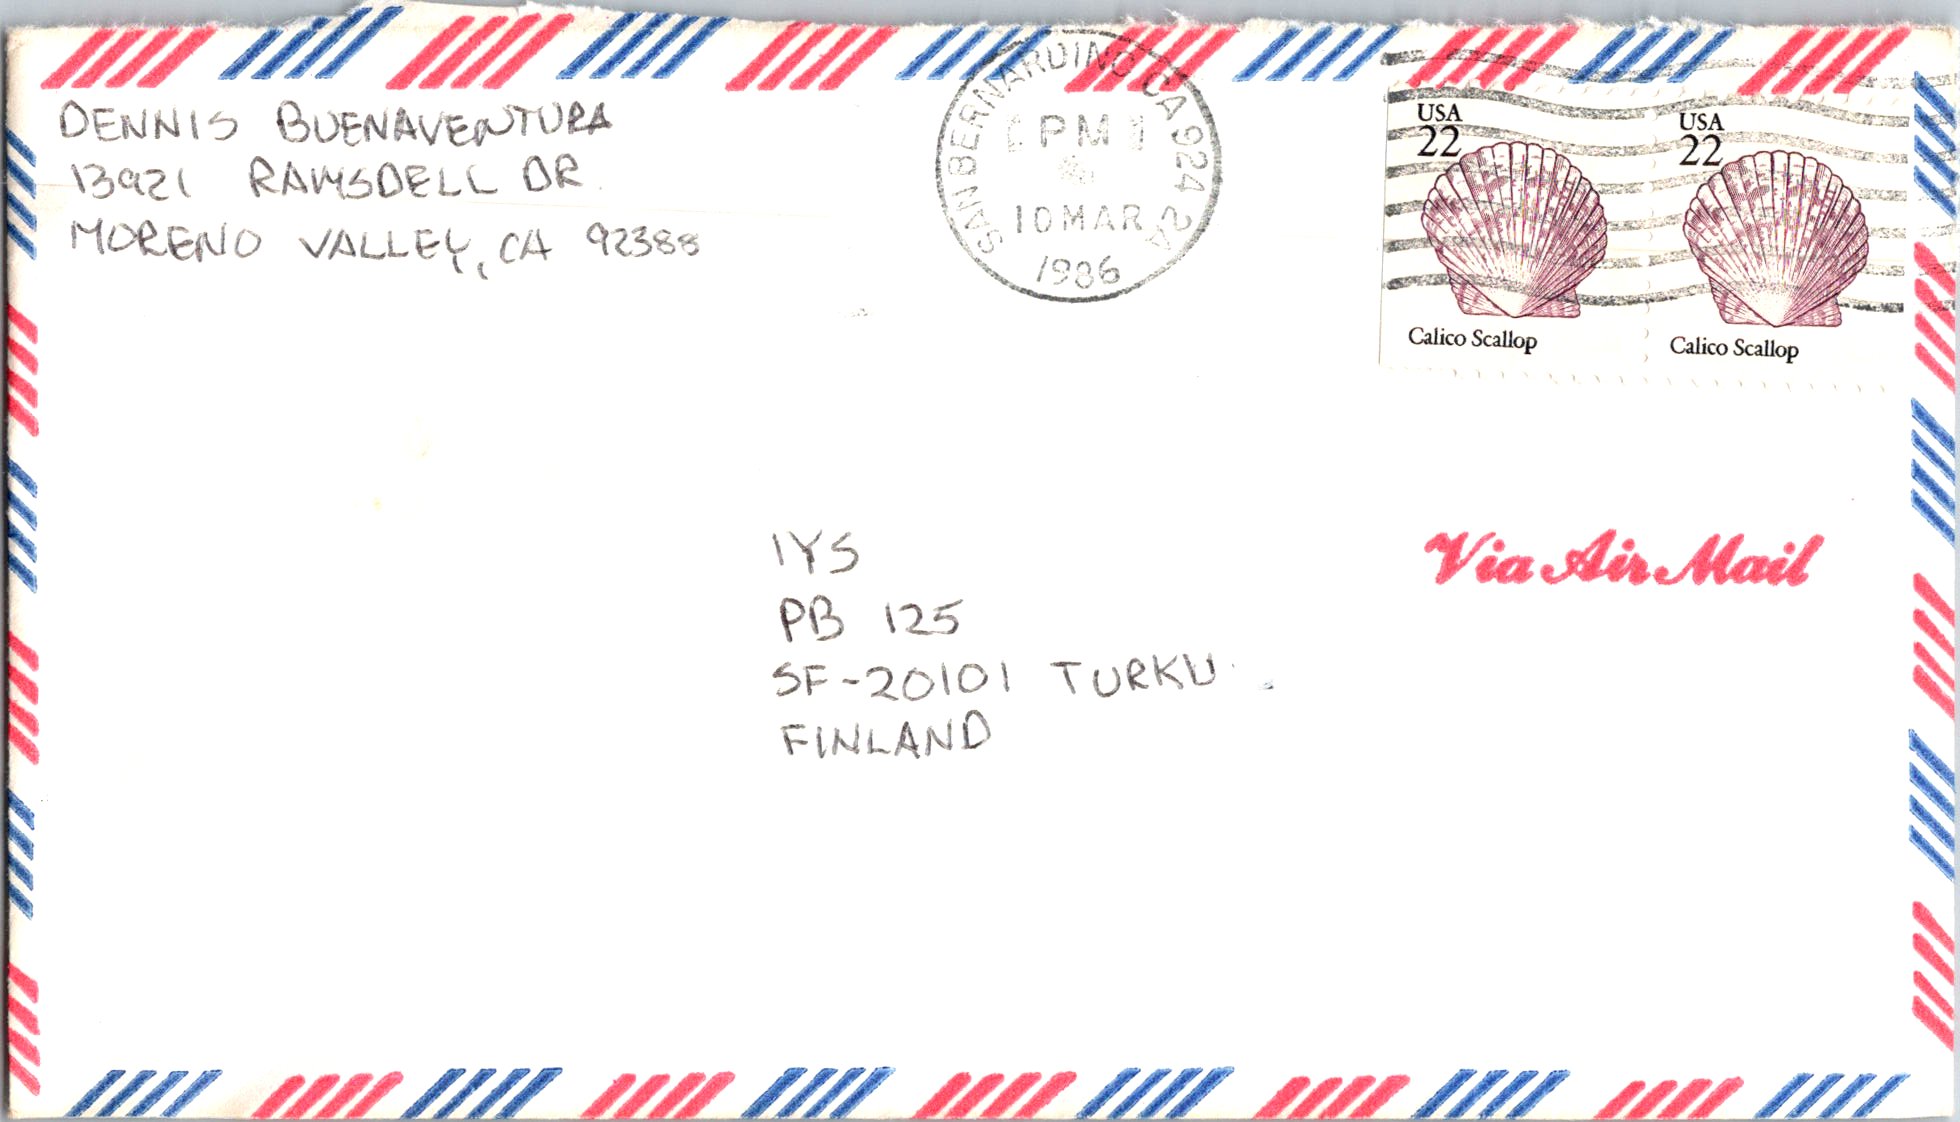 DENNIS BUENAVENTURA
13921 RAMSDELL DR.
MORENO VALLEY, CA 92388
SAN BERNARDINO CA 924 2A
PM
10 MAR
1986
USA
22
Calico Scallop
USA
22
Calico Scallop
Via Air Mail
IYS
PB 125
SF-20101 TURKU
FINLAND